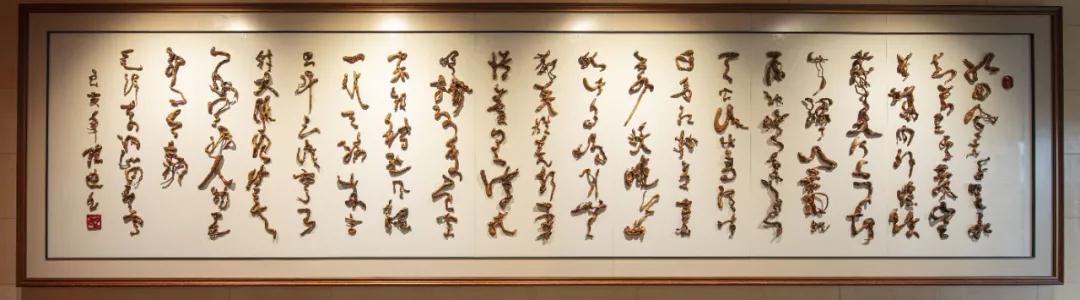 北国风光千里冰
封万里雪飘望
长城内外惟余
莽莽大河上下顿
失滔滔山舞银蛇
原驰蜡象欲与
天公试比高须
晴日看红装素裹
分外妖娆江
山如此多娇引
无数英雄竞折
腰惜秦皇汉武
略输文采唐宗
宋祖稍逊风骚
一代天骄成吉
思汗只识弯弓
射大雕俱往矣
数风流人物还
看今朝
毛泽东沁园春雪
寅年